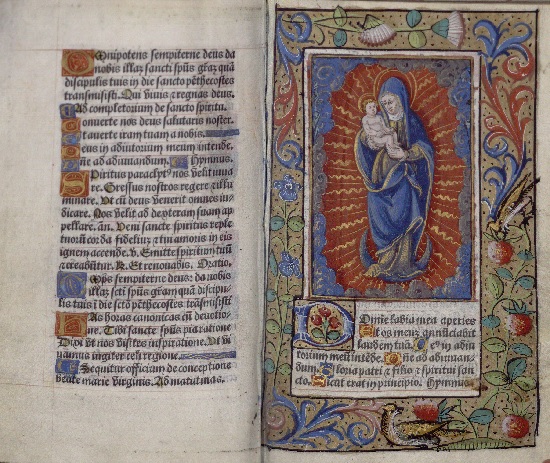 Omnipotens sempiterne deus da
nobis illaz sancti spũs grãz quã
discipulis tuis in die sancto pẽthecostes
transmisisti. Qui viuis ⁊ regnas deus.
Ad completorium de sancto spiritu.
Conuerte nos deus salutaris noster.
Et auerte iram tuam a nobis.
Deus in adiutorium meum intende.
Dñe ad adiuuandum. Hymnus.
Spiritus paraclyt⁹ nos velit iuua
re. Gressus nostros regere ⁊ illu
minare. Ut cũ deus venerit omnes in
dicare. Nos velit ad dexteram suam ap
pellare. añ. Veni sancte spiritus reple
tuorũ corda fideliũ: ⁊ tui amoris in eis
ignem accende. v. Emitte spiritum tuũ
⁊ creabũtur. R. Et renouabis. Oratio.
Omps sempiterne deus: da nobis
illaz scti spũs graz quã discipu
lis tuis ĩ die sctõ pẽthecostes trãsmisisti
Has horas canonicas cũ deuotio
ne. Tibi sancte spũs pia ratione
Dixi vt nos visites inspiratione. Et vi
uamus iugiter celi regione.
Sequitur officium de conceptione
beate marie virginis. Ad matutinas.
Domine labia mea aperies
Et os meuz annũciabit
laudem tuã. Deus in adiu
torium meũ intẽde. Dñe ad adiuuan
dum. Gloria patri ⁊ filio ⁊ spiritui san
cto. Sicut erat in principio. Hymnus.